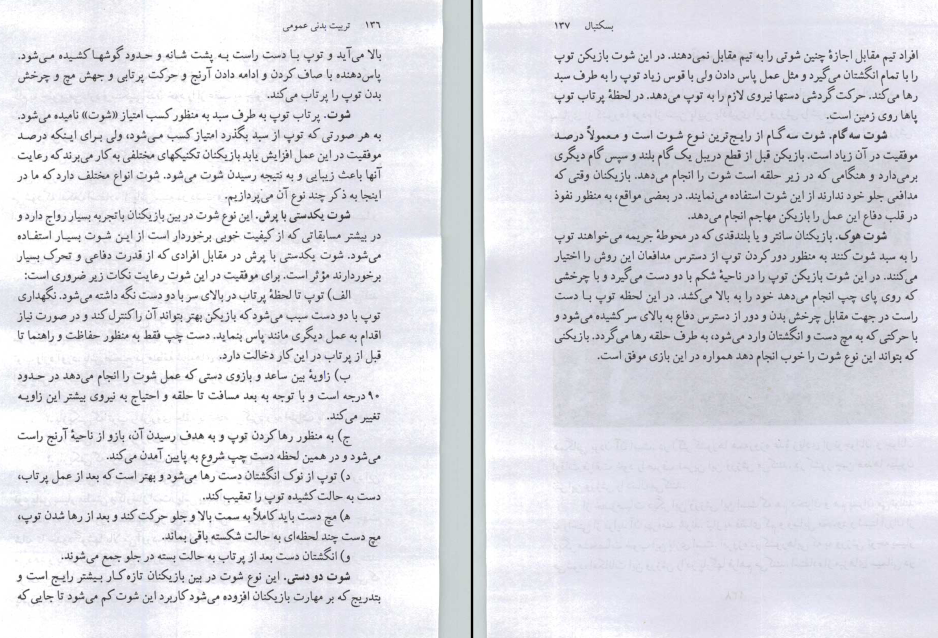 ۱۳۶ تربیت بدنی عمومی
بالا می‌آید و توپ با دست راست به پشت شانه و حدود گوشها کشیده می‌شود.
پاس‌دهنده با صاف کردن و ادامه دادن آرنج و حرکت پرتابی و جهش مچ و چرخش
بدن توپ را پرتاب می‌کند.
شوت. پرتاب توپ به طرف سبد به منظور کسب امتیاز «شوت» نامیده می‌شود.
به هر صورتی که توپ از سبد بگذرد امتیاز کسب می‌شود، ولی برای اینکه درصد
موفقیت در این عمل افزایش یابد بازیکنان تکنیکهای مختلفی به کار می‌برند که رعایت
آنها باعث زیبایی و به نتیجه رسیدن شوت می‌شود. شوت انواع مختلف دارد که ما در
اینجا به ذکر چند نوع آن می‌پردازیم.
شوت یکدستی با پرش. این نوع شوت در بین بازیکنان باتجربه بسیار رواج دارد و
در بیشتر مسابقاتی که از کیفیت خوبی برخوردار است از این شوت بسیار استفاده
می‌شود. شوت یکدستی با پرش در مقابل افرادی که از قدرت دفاعی و تحرک بسیار
برخوردارند مؤثر است. برای موفقیت در این شوت رعایت نکات زیر ضروری است:
الف) توپ تا لحظهٔ پرتاب در بالای سر با دو دست نگه داشته می‌شود. نگهداری
توپ با دو دست سبب می‌شود که بازیکن بهتر بتواند آن را کنترل کند و در صورت نیاز
اقدام به عمل دیگری مانند پاس بنماید. دست چپ فقط به منظور حفاظت و راهنما تا
قبل از پرتاب در این کار دخالت دارد.
ب) زاویهٔ بین ساعد و بازوی دستی که عمل شوت را انجام می‌دهد در حدود
۹۰ درجه است و با توجه به بعد مسافت تا حلقه و احتیاج به نیروی بیشتر این زاویه
تغییر می‌کند.
ج) به منظور رها کردن توپ و به هدف رسیدن آن، بازو از ناحیهٔ آرنج راست
می‌شود و در همین لحظه دست چپ شروع به پایین آمدن می‌کند.
د) توپ از نوک انگشتان دست رها می‌شود و بهتر است که بعد از عمل پرتاب،
دست به حالت کشیده توپ را تعقیب کند.
ه) مچ دست باید کاملاً به سمت بالا و جلو حرکت کند و بعد از رها شدن توپ،
مچ دست چند لحظه‌ای به حالت شکسته باقی بماند.
و) انگشتان دست بعد از پرتاب به حالت بسته در جلو جمع می‌شوند.
شوت دو دستی. این نوع شوت در بین بازیکنان تازه‌کار بیشتر رایج است و
بتدریج که بر مهارت بازیکنان افزوده می‌شود کاربرد این شوت کم می‌شود تا جایی که
بسکتبال ۱۳۷
افراد تیم مقابل اجازهٔ چنین شوتی را به تیم مقابل نمی‌دهند. در این شوت بازیکن توپ
را با تمام انگشتان می‌گیرد و مثل عمل پاس دادن ولی با قوس زیاد توپ را به طرف سبد
رها می‌کند. حرکت گردشی دستها نیروی لازم را به توپ می‌دهد. در لحظهٔ پرتاب توپ
پاها روی زمین است.
شوت سه گام. شوت سه گام از رایج‌ترین نوع شوت است و معمولاً درصد
موفقیت در آن زیاد است. بازیکن قبل از قطع دریبل یک گام بلند و سپس گام دیگری
برمی‌دارد و هنگامی که در زیر حلقه است شوت را انجام می‌دهد. بازیکنان وقتی که
مدافعی جلو خود ندارند از این شوت استفاده می‌نمایند. در بعضی مواقع، به منظور نفوذ
در قلب دفاع این عمل را بازیکن مهاجم انجام می‌دهد.
شوت هوک. بازیکنان سانتر و یا بلندقدی که در محوطهٔ جریمه می‌خواهند توپ
را به سبد شوت کنند به منظور دور کردن توپ از دسترس مدافعان این روش را اختیار
می‌کنند. در این شوت بازیکن توپ را در ناحیهٔ شکم با دو دست می‌گیرد و با چرخشی
که روی پای چپ انجام می‌دهد خود را به بالا می‌کشد. در این لحظه توپ با دست
راست در جهت مقابل چرخش بدن و دور از دسترس دفاع به بالای سر کشیده می‌شود و
با حرکتی که به مچ دست و انگشتان وارد می‌شود، به طرف حلقه رها می‌گردد. بازیکنی
که بتواند این نوع شوت را خوب انجام دهد همواره در این بازی موفق است.